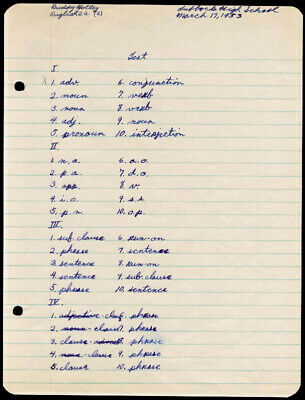 Buddy Holley Lubbock High School
English 22 (2) March 17, 1953
Test
I
X 1. adv. 6. conjunction
2. noun 7. verb
3. noun 8. verb
4. adj. 9. noun
5. pronoun 10. interjection
II.
1. n. a. 6. a. o.
2. p. a. 7. d. o.
3. app. 8. v.
4. i. o. 9. s. s.
5. p. n. 10. o. p.
III.
1. sub. clause 6. Run-on
2. phrase 7. sentence
3. sentence 8. Run-on
4. sentence 9. sub. clause
5. phrase 10. sentence
IV.
1. adjective clause 6. phrase
2. noun clause 7. phrase
3. clause 8. phrase
4. noun clause 9. phrase
5. clause 10. phrase